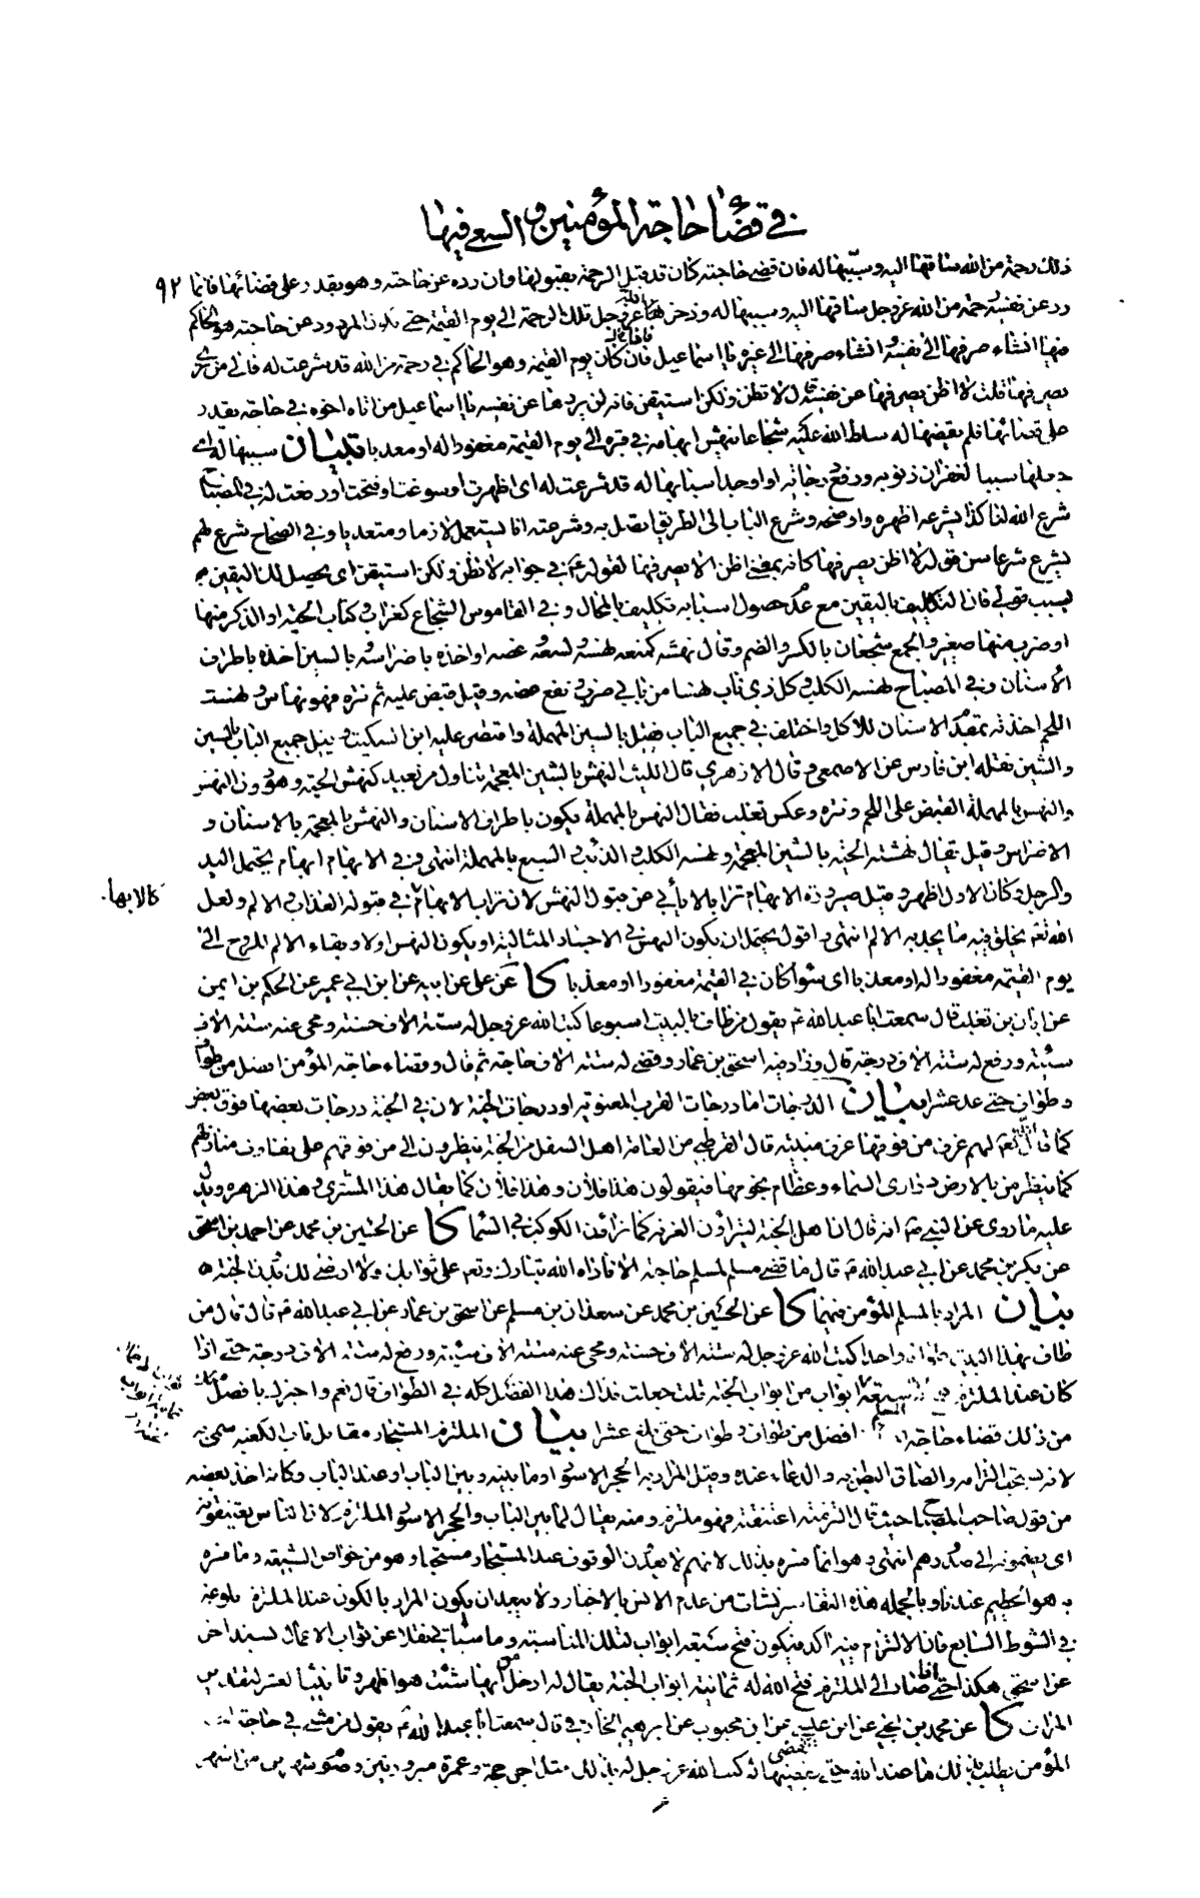 في قضاء حاجة المؤمنين و السعي فيها
٩٢
ذلك رحمة من الله ساقها اليه وسببها له فان قضى حاجته كان قد قبل الرحمة بقبولها وان رده عن حاجته وهو يقدر على قضائها فانما
رد عن نفسه رحمة من الله عز وجل ساقها اليه وسببها له وذخر الله عز وجل تلك الرحمة الى يوم القيمة حتى يكون المردود عن حاجته هو الحاكم
فيها انشاء صرفها الى نفسه وانشاء صرفها الى غيره يا اسماعيل فاذا كان يوم القيمة وهو الحاكم في رحمة من الله قد شرعت له فالى من ترى
يصرفها قلت لا اظن يصرفها عن نفسه قال لا تظن ولكن استيقن فانه لن يردها عن نفسه يا اسماعيل من اتاه اخوه في حاجة يقدر
على قضائها فلم يقضها له سلط الله عليه شجاعا ينهش ابهامه في قبره الى يوم القيمة مغفورا له او معذبا تبيان سببها له اى
جعلها سببا لغفران ذنوبه ورفع درجاته او اوجد اسبابها له قد شرعت له اى اظهرت او سوغت او فتحت او رفعت له في المصباح
شرع الله لنا كذا يشرعه اظهره واوضحه وشرع الباب الى الطريق اتصل به وشرعته انا يستعمل لازما ومتعديا وفي الصحاح شرع لهم
يشرع شرعا سن قوله لا اظن يصرفها كانه بمعنى اظن الا يصرفها لقوله في جوابه لا تظن ولكن استيقن اى يحصل لك اليقين به
بسبب قولي فان التكليف باليقين مع عدم حصول اسبابه تكليف بالمحال وفي القاموس الشجاع كغراب وكتاب الحية او الذكر منها
او ضرب منها صغير والجمع شجعان بالكسر والضم وقال نهشه كمنعه نهسه ولسعه وعضه او اخذه باضراسه وبالسين اخذه باطراف
الاسنان وفي المصباح نهسه الكلب وكل ذي ناب نهسا من بابي ضرب ونفع عضه وقيل قبض عليه ثم نتره فهو نهاس ونهست
اللحم اخذته بمقدم الاسنان للاكل واختلف في جميع الباب فقيل بالسين المهملة واقتصر عليه ابن السكيت وقيل جميع الباب بالسين
والشين نقله ابن فارس عن الاصمعي وقال الازهري قال الليث النهش بالشين المعجمة تناول من بعيد كنهش الحية وهو دون النهس
والنهس بالمهملة القبض على اللحم ونتره وعكس ثعلب فقال النهس بالمهملة يكون باطراف الاسنان والنهش بالمعجمة بالاسنان و
الاضراس وقيل يقال نهشته الحية بالشين المعجمة ونهسه الكلب والذئب والسبع بالمهملة انتهى وفي الابهام ابهام يحتمل اليد
والرجل وكان الاول اظهر وقيل صيرورة الابهام ترابا لا يأبى عن قبول النهش لان تراب الابهام في قبوله العذاب والالم ولعل
كالابهام
الله تعالى يخلق فيه ما يجد به الالم انتهى واقول يحتمل ان يكون النهس في الاجساد المثالية او يكون النهس اولا وبقاء الالم للروح الى
يوم القيمة مغفورا له او معذبا اى سواء كان في القيمة مغفورا او معذبا كا عن علي عن ابيه عن ابن ابي عمير عن الحكم بن ايمن
عن ابان بن تغلب قال سمعت ابا عبد الله يقول من طاف بالبيت اسبوعا كتب الله عز وجل له ستة الاف حسنة ومحى عنه ستة الاف
سيئة ورفع له ستة الاف درجة قال وزاد فيه اسحق بن عمار وقضى له ستة الاف حاجة ثم قال وقضاء حاجة المؤمن افضل من طواف
وطواف حتى عد عشرا بيان الدرجات اما درجات القرب المعنوية او درجات الجنة لان في الجنة درجات بعضها فوق بعض
كما قال الله تعالى لهم غرف من فوقها غرف مبنية قال القرطبي من العامة اهل السفل من الجنة ينظرون الى من فوقهم على تفاوت منازلهم
كما ينظر من بالارض دراري السماء وعظام نجومها فيقولون هذا فلان وهذا فلان كما يقال هذا المشتري وهذا الزهرة ويدل
عليه ما روى عن النبي انه قال ان اهل الجنة ليتراؤن الغرف كما ترائون الكوكب في السماء كا عن الحسين بن محمد عن احمد بن اسحق
عن بكر بن محمد عن ابي عبد الله قال ما قضى مسلم لمسلم حاجة الا ناداه الله تبارك وتعالى على ثوابك ولا ارضى لك بدون الجنة
بيان المراد بالمسلم المؤمن فيهما كا عن الحسين بن محمد عن سعدان بن مسلم عن اسحق بن عمار عن ابي عبد الله قال قال من
طاف بهذا البيت طوافا واحدا كتب الله عز وجل له ستة الاف حسنة ومحى عنه ستة الاف سيئة ورفع له ستة الاف درجة حتى اذا
كان عند الملتزم فتح له سبعة ابواب من ابواب الجنة قلت جعلت فداك هذا الفضل كله في الطواف قال نعم واخبرك بافضل
من ذلك قضاء حاجة افضل من طواف وطواف حتى بلغ عشرا بيان الملتزم المستجار مقابل باب الكعبة سمى به
لانه يستحب التزامه والصاق البطن به والدعاء عنده وقيل المراد به الحجر الاسود او ما بينه وبين الباب او عند الباب وكانه اخذ بعضه
من قول صاحب المصباح حيث قال التزمته اعتنقته فهو ملتزم ومنه يقال لما بين الباب والحجر الاسود الملتزم لان الناس يعتنقونه
اى يضمونه الى صدورهم انتهى وهو انما فسره بذلك لانهم لا يعدون الوقوف عند المستجار مستحبا وهو من خواص الشيعة وما فسره
به هو الحطيم عندنا وبالجملة هذه التفاسير نشأت من عدم الانس بالاخبار ولا يبعد ان يكون المراد بالكون عند الملتزم بلوغه
في الشوط السابع فان الالتزام فيه اكد فيكون فتح سبعة ابواب لتلك المناسبة وما سيأتي نقلا عن ثواب الاعمال بسند اخر
عن اسحق هكذا حتى اذا صار الى الملتزم فتح الله له ثمانية ابواب الجنة يقال له ادخل من ايها شئت هو اظهر
كا عن محمد بن يحيى عن ابن عيسى عن ابن محبوب عن ابراهيم الخارقي قال سمعت ابا عبد الله يقول من مشى في حاجة
المؤمن يطلب بذلك ما عند الله حتى تقضى له كتب الله عز وجل له بذلك مثل اجر حجة وعمرة مبرورتين وصوم شهرين من اشهر